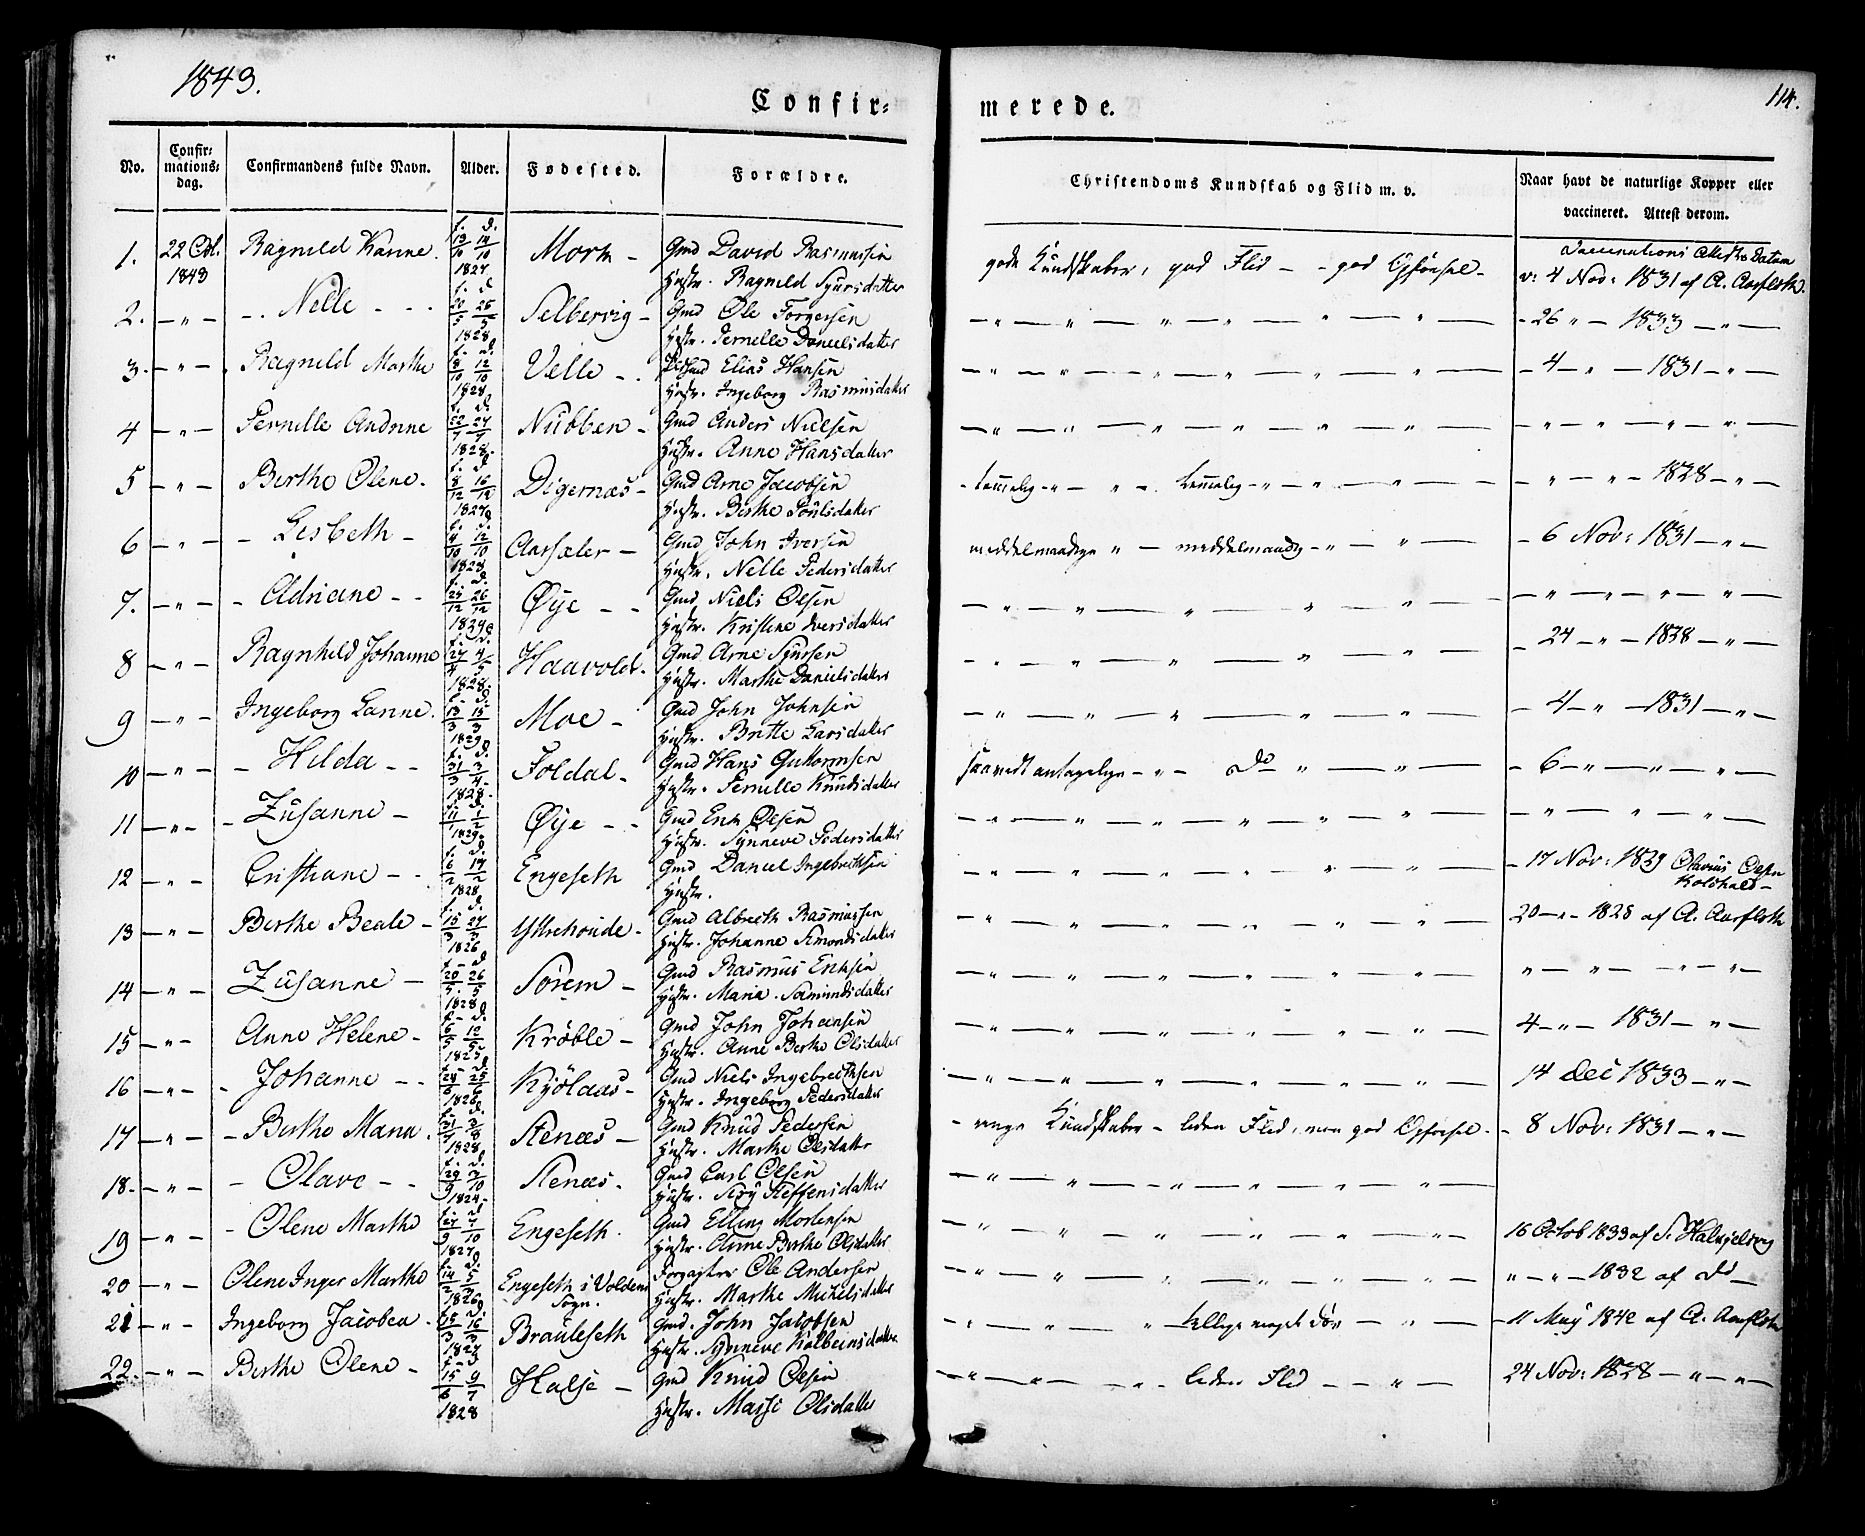 1843.
114.
Confir-
merede.
No.
Confir-
mations-
dag.
Confirmandens fulde Navn.
Alder.
Fødested.
Forældre.
Christendoms Kundskab og Flid m. v.
Naar havt de naturlige Kopper eller
vaccineret. Attest derom.
f. d.
1. 22 1843 Ragnild Hanne. 13/10 14/10 1827 Mork - Gmd David Rasmussen
Hustr. Ragnild Sjursdatter
gode Kundskaber, god Flid - - god Opførsel -
v: 4 Nov: 1831 af A. Aarfloth.
2. - " - - . Nelle - . - f. d. 20/5 25/5 1828 Selbervig - Gmd Ole Torgersen
Hustr. Pernelle Danielsdatter
- 26 " - 1833 - " -
3. - " - . Ragnild Marthe f. d. 8/10 12/10 1828 Velle - . Elias Hansen
Hustr. Ingeborg Rasmusdatter
- 4 - " - 1831 - " -
4 - " - Pernille Andrine f. d. 22/7 27/7 1828. Nubben - Gmd Anders Nielsen
Hustr. Anne Hansdatter
5 - " - Berthe Olene. f. d. 8/12 16/12 1827 Digernæs - Gmd Arne Jacobsen
Hustr. Berthe Poulsdatter
- temelig - " - " - . temelig - " - " - " -
- " - " - 1828 - " -
6 - " - - Lisbeth - f. d. 4/10 12/10 1828 Aarsæter - Gmd John Iversen
Hustr. Nelle Pedersdatter
meddelmaadige " - meddelmaadig - " - " -
- 6 Nov: 1831 - " -
7. - " - - Adriane - - f. d. 25/12 26/12 1829 Øye - - Gmd Niels Olsen
Hustr. Kristine Iversdatter
8 - " - Ragnhild Johanne f. d. 27/4 4/5 1828. Haavold. Gmd Arne Sjursen
Hustr. Marthe Danielsdatter
- 24 - " - 1828 - " -
9 - " - Ingeborg Lanne. f. d. 13/3 15/3 1829 Moe - Gmd John Johnsen
Hustr. Britte Larsdatter
- 4 - " - 1831 - " -
10 - " - - Hilda - - f. d. 31/3 3/4 1828. Foldal - Gmd Hans Guttormsen
Hustr. Pernille Knudsdatter
saavidt antagelige - " - do " - " -
- 6 - " - " - " -
11 - " - - Zusanne - f. d. 11/1 1/2 1829. Øye - - Gmd Erik Olsen
Hustr. Synneve Pedersdatter
12 - " - Cristiane - - f. d. 6/2 17/2 1828 Engeseth Gmd Daniel Ingebrethsen
Hustr.
- 17 Nov: 1829 Olavius Olsen
Koldhald -
13 - " - Berthe Beate - f. d. 15/3 27/3 1826 Yttrehovde - Gmd Albreth Rasmussen
Hustr. Johanne Simondsdatter
20 - " - 1828 af A. Aarfloth
14 - " - Zusanne - f. d. 20/5 26/5 1828 Sørem - Gmd Rasmus Eriksen
Hustr. Maria Samundsdatter
15 - " - Anne Helene - f. d. 6/5 12/5 1825 Krøble - Gmd John Johansen
Hustr. Anne Berthe Olsdatter
4 - " - 1831 - " -
16 - " - - Johanne - - f. d. 1826 Kjølaas - Gmd Niels Ingebrethsen
Hustr. Ingeborg Pedersdatter
14 Dec 1833 - " -
17 - " - - Berthe Maria. f. d. 1828 Stenæs - Gmd Knud Pedersen
Hustr. Marthe Olsdatter
- ringe Kundskaber - liden Flid, men god Opførsel. -
- 8 Nov: 1831 - " -
18. - " - - Olave - - f. d. 29/9 3/10 1824. Stenæs. Gmd Carl Olsen
Hustr. Steffensdatter
19 - " - - Olene Marthe f. d. 27/9 7/10 1827 Engeseth. Gmd Elling Mortensen
Hustr. Anne Berthe Olsdatter
16 Octob 1833 af S. Halkjelsvig
20 - " - Olene Inger Marthe f. d. 1826 Engeseth i Voldens
Sogn. Forpagter Ole Andersen
Hustr. Marthe Mickelsdatter
" - " - 1832 af do -
21 - " - Ingeborg Jacobea f. d. 15/3 16/3 1827 Brauteseth Gmd. John Jacobsen
Hustr. Synneve Kolbeinsdatter
- 11 May 1842 af A. Aarfloth
22. - " - Berthe Olene - f. d. 15/6 9/7 1828 Halse - Gmd Knud Olsen
Hustr. Massi Olsdatter
- liden Flid - - " -
24 Nov: 1828 - " - " -